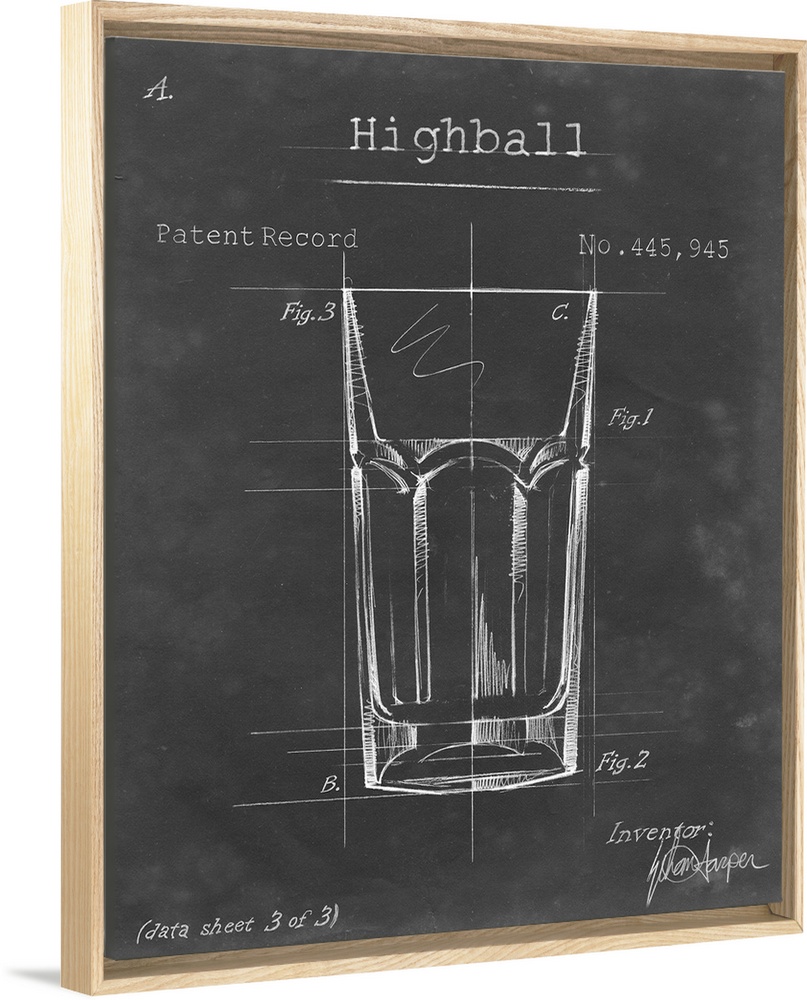 A.
Highball
Patent Record No. 445,945
Fig. 3 C.
Fig. 1
B. Fig. 2
Inventor:
Harper
(data sheet 3 of 3)